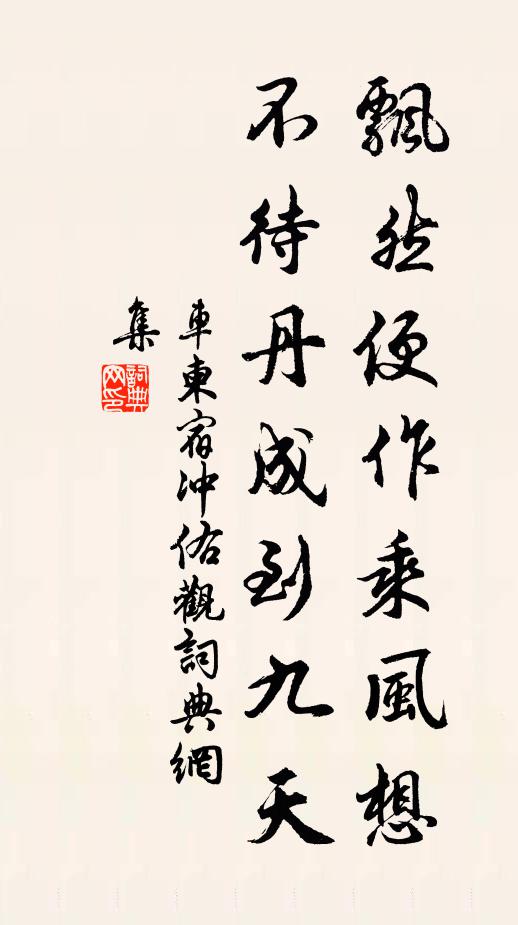 飄然便作乘風想
不待丹成到九天
車東宿沖佑觀詞典網
集
詞典網印